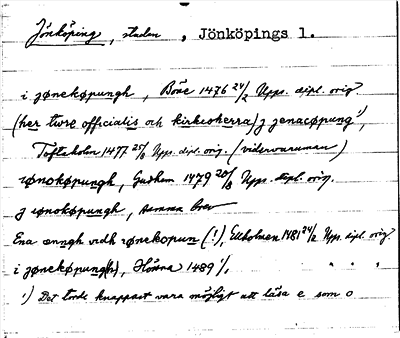 Jönköping, staden, Jönköpings l.
i jønekøpungh, Böne 1476 24/2 Upps. dipl. orig
(her twre officialis och kirkioherra) j jenacøpung¹),
Toftaholm 1477 25/8 Upps. dipl. orig. (vidervaruman)
iønokøpungh, Gudhem 1479 20/8 Upps. dipl. orig.
j iønokøpungh, samma brev
Ena ænngh vidh iønekopun (!), Ekholmen 1481 24/2 Upps. dipl. orig.
i jønekøpung(h), Hönsna 1489 1/1 " " "
¹) Det torde knappast vara möjligt att läsa e som o